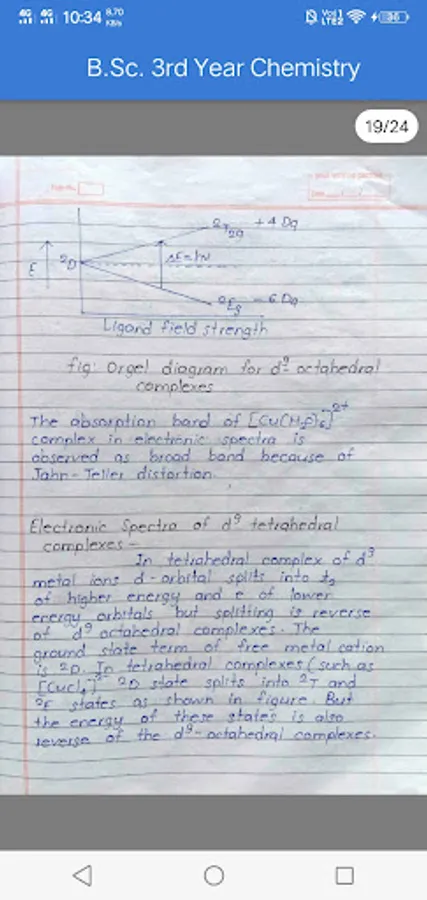 10:34
8.70
KB/s
B.Sc. 3rd Year Chemistry
19/24
²T₂g +4 Dq
E
²D
ΔE=hν
²Eg -6 Dq
Ligand field strength
fig: Orgel diagram for d⁹ octahedral
complexes
The absorption band of [Cu(H₂O)₆]²⁺
complex in electronic spectra is
observed as broad band because of
Jahn-Teller distortion.
Electronic Spectra of d⁹ tetrahedral
complexes -
In tetrahedral complex of d⁹
metal ions d-orbital splits into t₂
of higher energy and e of lower
energy orbitals but splitting is reverse
of d⁹ octahedral complexes. The
ground state term of free metal cation
is ²D. In tetrahedral complexes (such as
[CuCl₄]²⁻ ²D state splits into ²T and
²E states as shown in figure. But
the energy of these states is also
reverse of the d⁹-octahedral complexes.